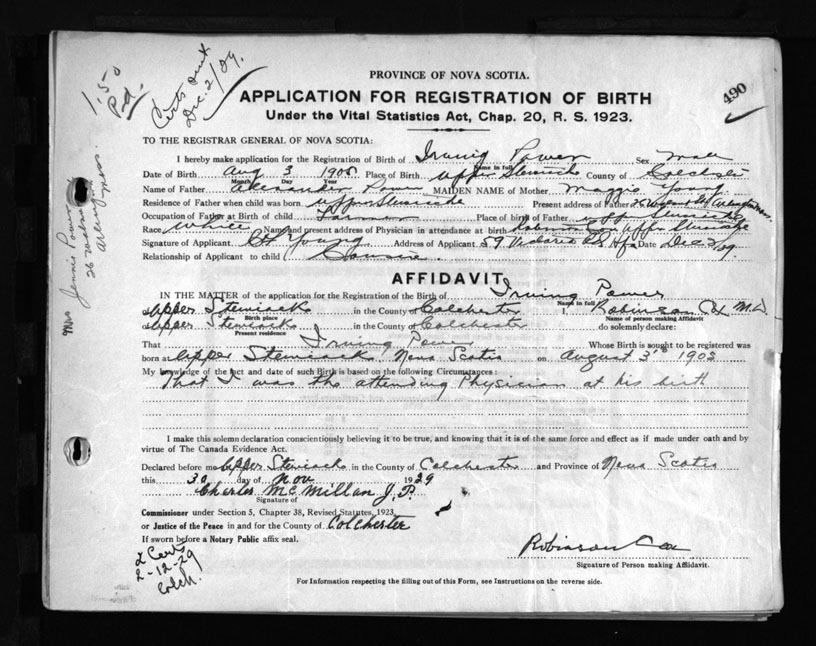 1.50
Pd.
Certs sent
Dec. 2/29.
490
PROVINCE OF NOVA SCOTIA.
APPLICATION FOR REGISTRATION OF BIRTH
Under the Vital Statistics Act, Chap. 20, R. S. 1923.
TO THE REGISTRAR GENERAL OF NOVA SCOTIA:
I hereby make application for the Registration of Birth of Irving Power Sex Male
Name in full
Date of Birth Aug 3 1905 Place of Birth Upper Stewiacke County of Colchester
Month Day Year
Name of Father Alexander Power MAIDEN NAME of Mother Maggie Young
Residence of Father when child was born Upper Stewiacke Present address of Father 26
Occupation of Father at Birth of child Farmer Place of birth of Father Upper Stewiacke
Race White Name and present address of Physician in attendance at birth Robinson Cox Upper Stewiacke
Signature of Applicant Young Address of Applicant 59 Victoria Rd Hfx Date Dec 2/29.
Relationship of Applicant to child Cousin
Mrs Jennie Power
26
Arlington
Mass.
AFFIDAVIT
IN THE MATTER of the application for the Registration of the Birth of Irving Power
Name in full
Upper Stewiacke in the County of Colchester I, Robinson Cox M.D.
Birth place Name of person making Affidavit
Upper Stewiacke in the County of Colchester do solemnly declare:
Present residence
That Irving Power Whose Birth is sought to be registered was
born at Upper Stewiacke, Nova Scotia on August 3rd 1903
My knowledge of the fact and date of such Birth is based on the following Circumstances:
That I was the attending Physician at his birth
I make this solemn declaration conscientiously believing it to be true, and knowing that it is of the same force and effect as if made under oath and by
virtue of The Canada Evidence Act.
Declared before me Upper Stewiacke in the County of Colchester and Province of Nova Scotia
this 30 day of Nov 1929
Charles McMillan J.P.
Signature of
Commissioner under Section 5, Chapter 38, Revised Statutes, 1923,
or Justice of the Peace in and for the County of Colchester
If sworn before a Notary Public affix seal.
2 Certs
2-12-29
Colch.
Robinson Cox
Signature of Person making Affidavit.
For Information respecting the filling out of this Form, see Instructions on the reverse side.